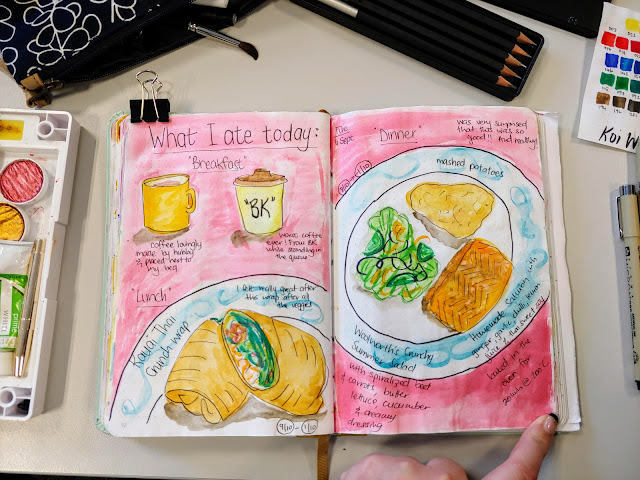 What I ate today:
"Breakfast"
"BK"
coffee lovingly
made by hubby
& placed next to
my bed
worst coffee
ever! From BK
while standing in
the queue
"Lunch"
I felt really great after
this wrap after all
the veggies
Kauai Thai
Crunch wrap
9/10
1/10
Tue
"Dinner"
was very surprised
that this was so
good!! And healthy!
mashed potatoes
Homemade Salmon with
ginger garlic
juice & Thai sweet soy
baked in the
oven for
20min @ 200°C
Woolworth's Crunchy
Summer Salad
with spiralized beet
& carrots butter
lettuce cucumber
& creamy
dressing
Koi W
WHITE